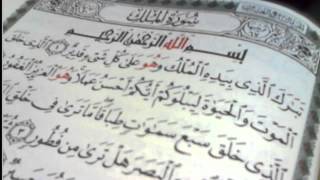 سُورَةُ الْمُلْكِ
بِسْمِ اللَّهِ الرَّحْمَٰنِ الرَّحِيمِ
تَبَارَكَ الَّذِي بِيَدِهِ الْمُلْكُ وَهُوَ عَلَىٰ كُلِّ شَيْءٍ قَدِيرٌ ﴿١﴾ الَّذِي خَلَقَ
الْمَوْتَ وَالْحَيَاةَ لِيَبْلُوَكُمْ أَيُّكُمْ أَحْسَنُ عَمَلًا وَهُوَ الْعَزِيزُ الْغَفُورُ
الَّذِي خَلَقَ سَبْعَ سَمَاوَاتٍ طِبَاقًا مَا تَرَىٰ فِي خَلْقِ
الْبَصَرَ هَلْ تَرَىٰ مِنْ فُطُورٍ ﴿٣﴾